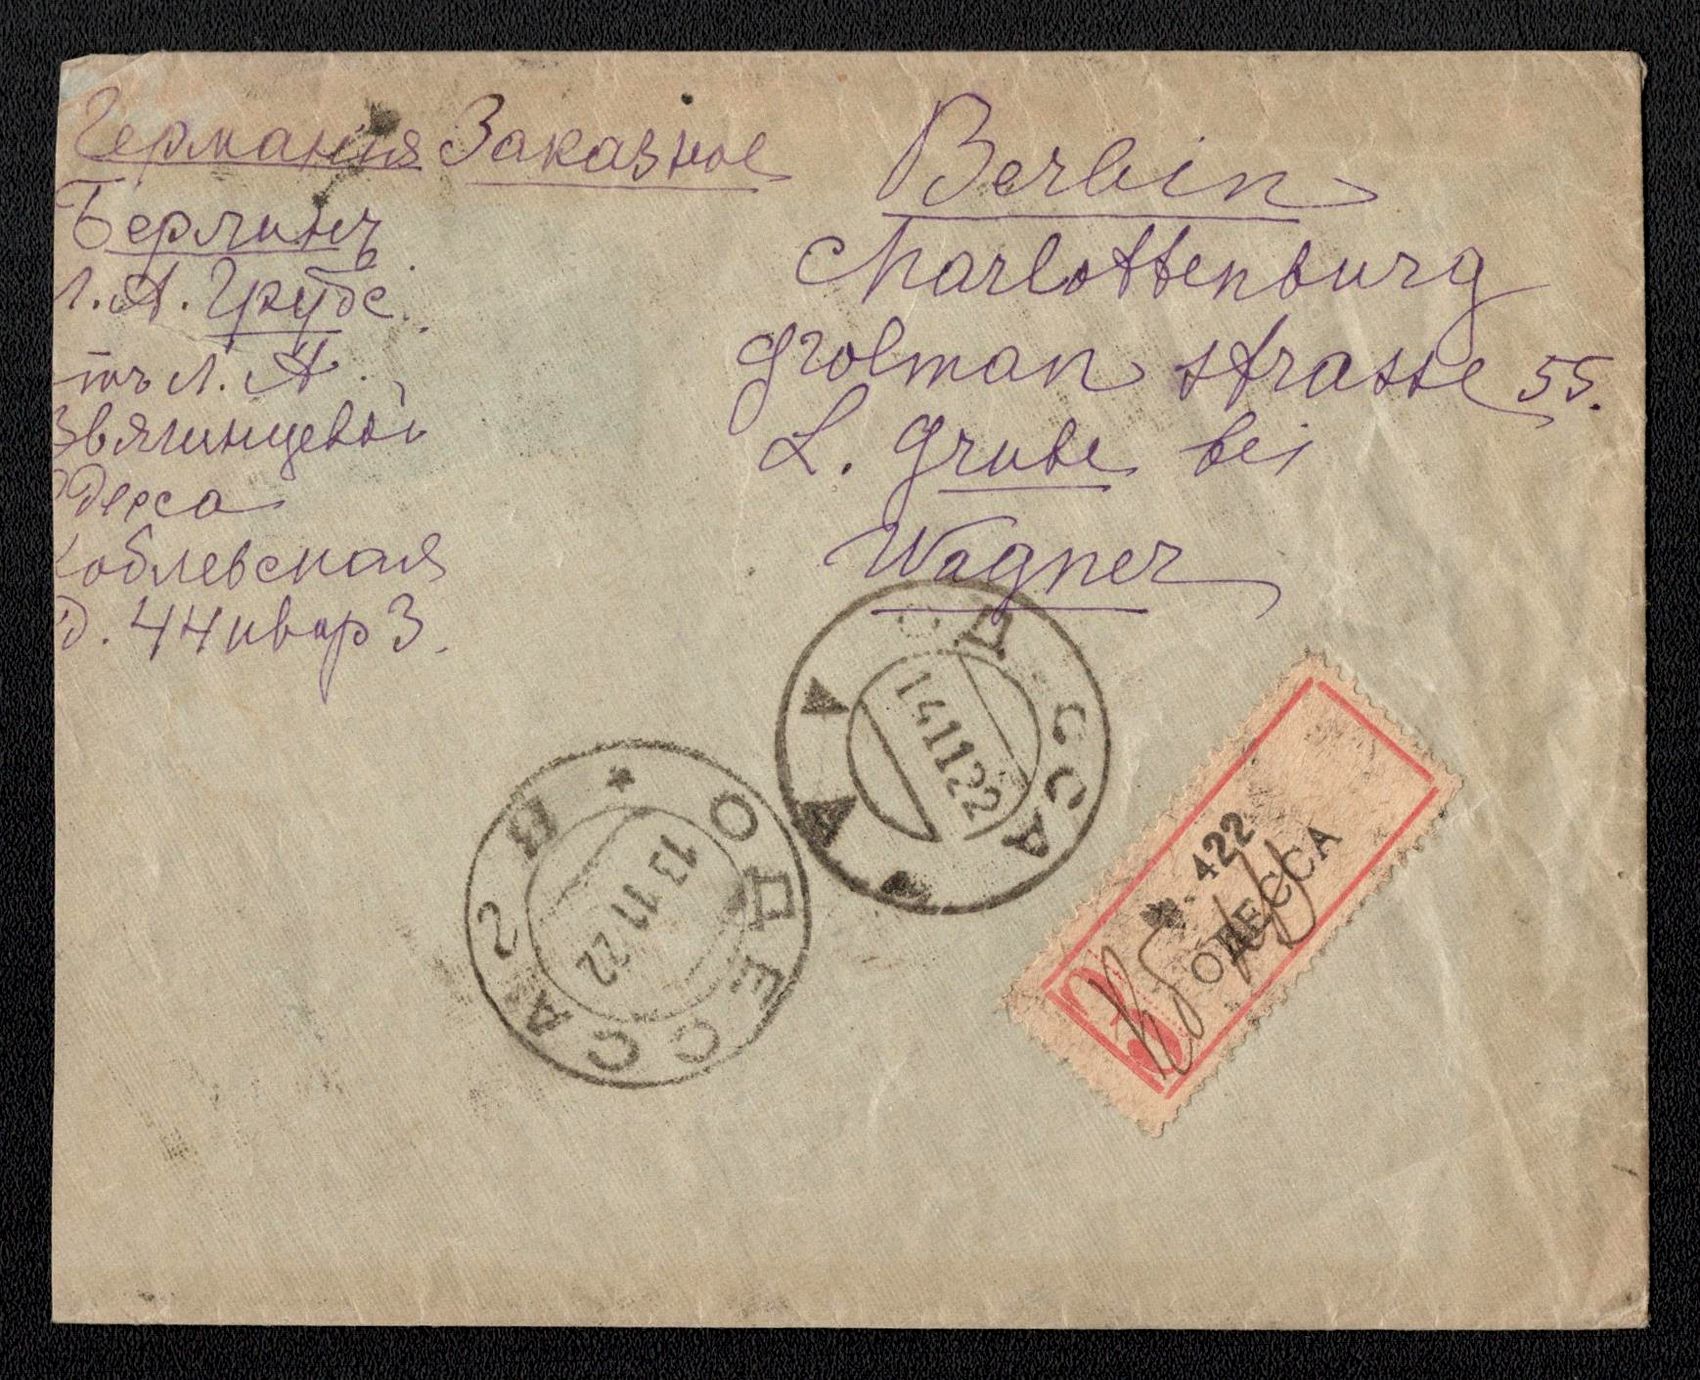 Германия Заказное
Берлинъ
Л. А. Грубе.
отъ Л. А.
Звягинцевой
Одесса
Коблевская
д. 44 квар 3.
Berlin
Charlottenburg
Grolman strasse 55.
L. Grube bei
Wagner
ОДЕССА
14 11 22
ОДЕССА 2 Я
13 11 22
R
422
ОДЕССА